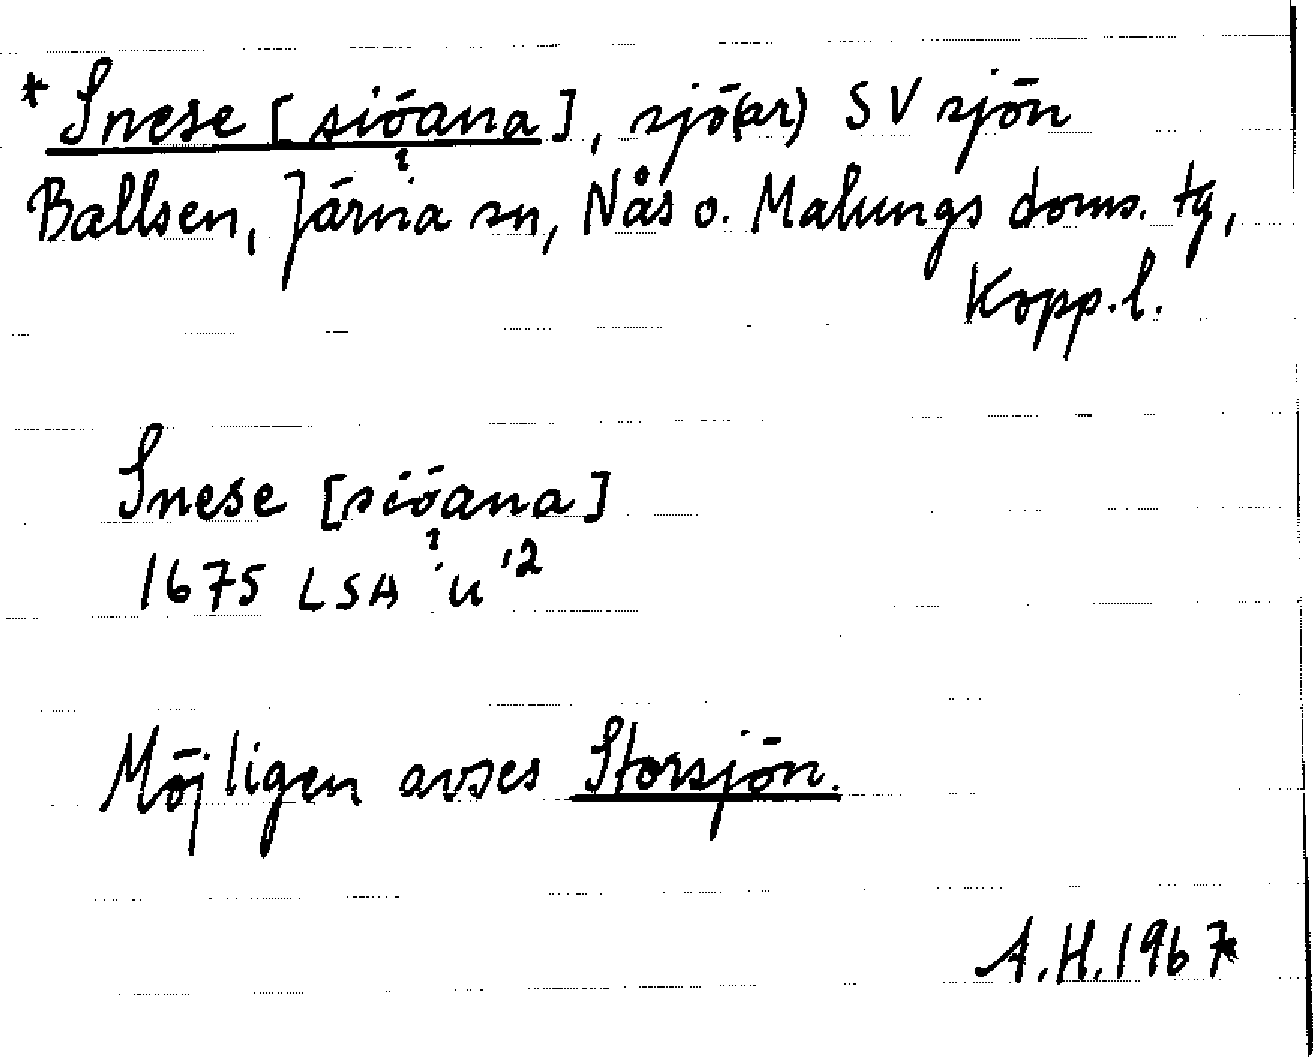 * Snese [siöana], sjö(ar) SV sjön
?
Ballsen, Järna sn, Nås o. Malungs doms. tg,
Kopp.l.
Snese [siöana]
?
1675 LSA U '2
Möjligen avses Storsjön.
A.H. 1967